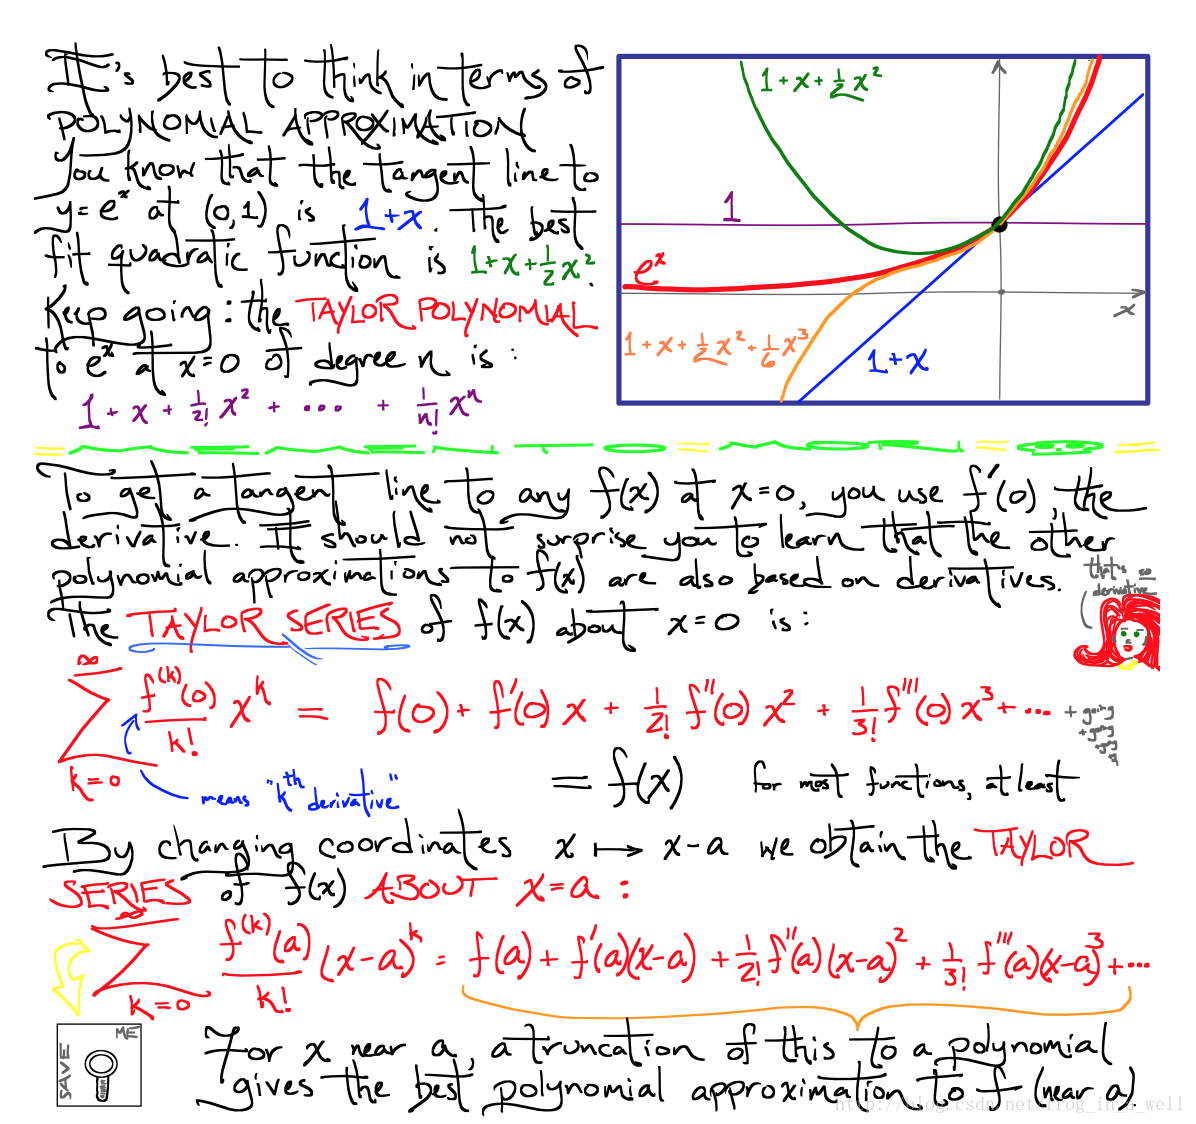 It's best to think in terms of
POLYNOMIAL APPROXIMATION
You know that the tangent line to
y = e^x at (0,1) is 1+x. The best
fit quadratic function is 1+x+½x².
Keep going: the TAYLOR POLYNOMIAL
to e^x at x=0 of degree n is:
1 + x + 1/2! x² + ... + 1/n! x^n
1+x+½x²
1
e^x
x
1+x+½x²+⅙x³
1+x
To get a tangent line to any f(x) at x=0, you use f'(0), the
derivative. It should not surprise you to learn that the other
polynomial approximations to f(x) are also based on derivatives.
that's so
derivative
The TAYLOR SERIES of f(x) about x=0 is:
∑_{k=0}^{∞} f^(k)(0)/k! x^k = f(0) + f'(0) x + 1/2! f''(0) x² + 1/3! f'''(0) x³ + ...
+ going
+ going
+ going
means "kth derivative"
= f(x) for most functions, at least
By changing coordinates x ↦ x-a we obtain the TAYLOR
SERIES of f(x) ABOUT x=a:
∑_{k=0}^{∞} f^(k)(a)/k! (x-a)^k = f(a) + f'(a)(x-a) + 1/2! f''(a)(x-a)² + 1/3! f'''(a)(x-a)³ + ...
SAVE ME
For x near a, a truncation of this to a polynomial
gives the best polynomial approximation to f (near a).
http://blog.csdn.net/frog_in_a_well